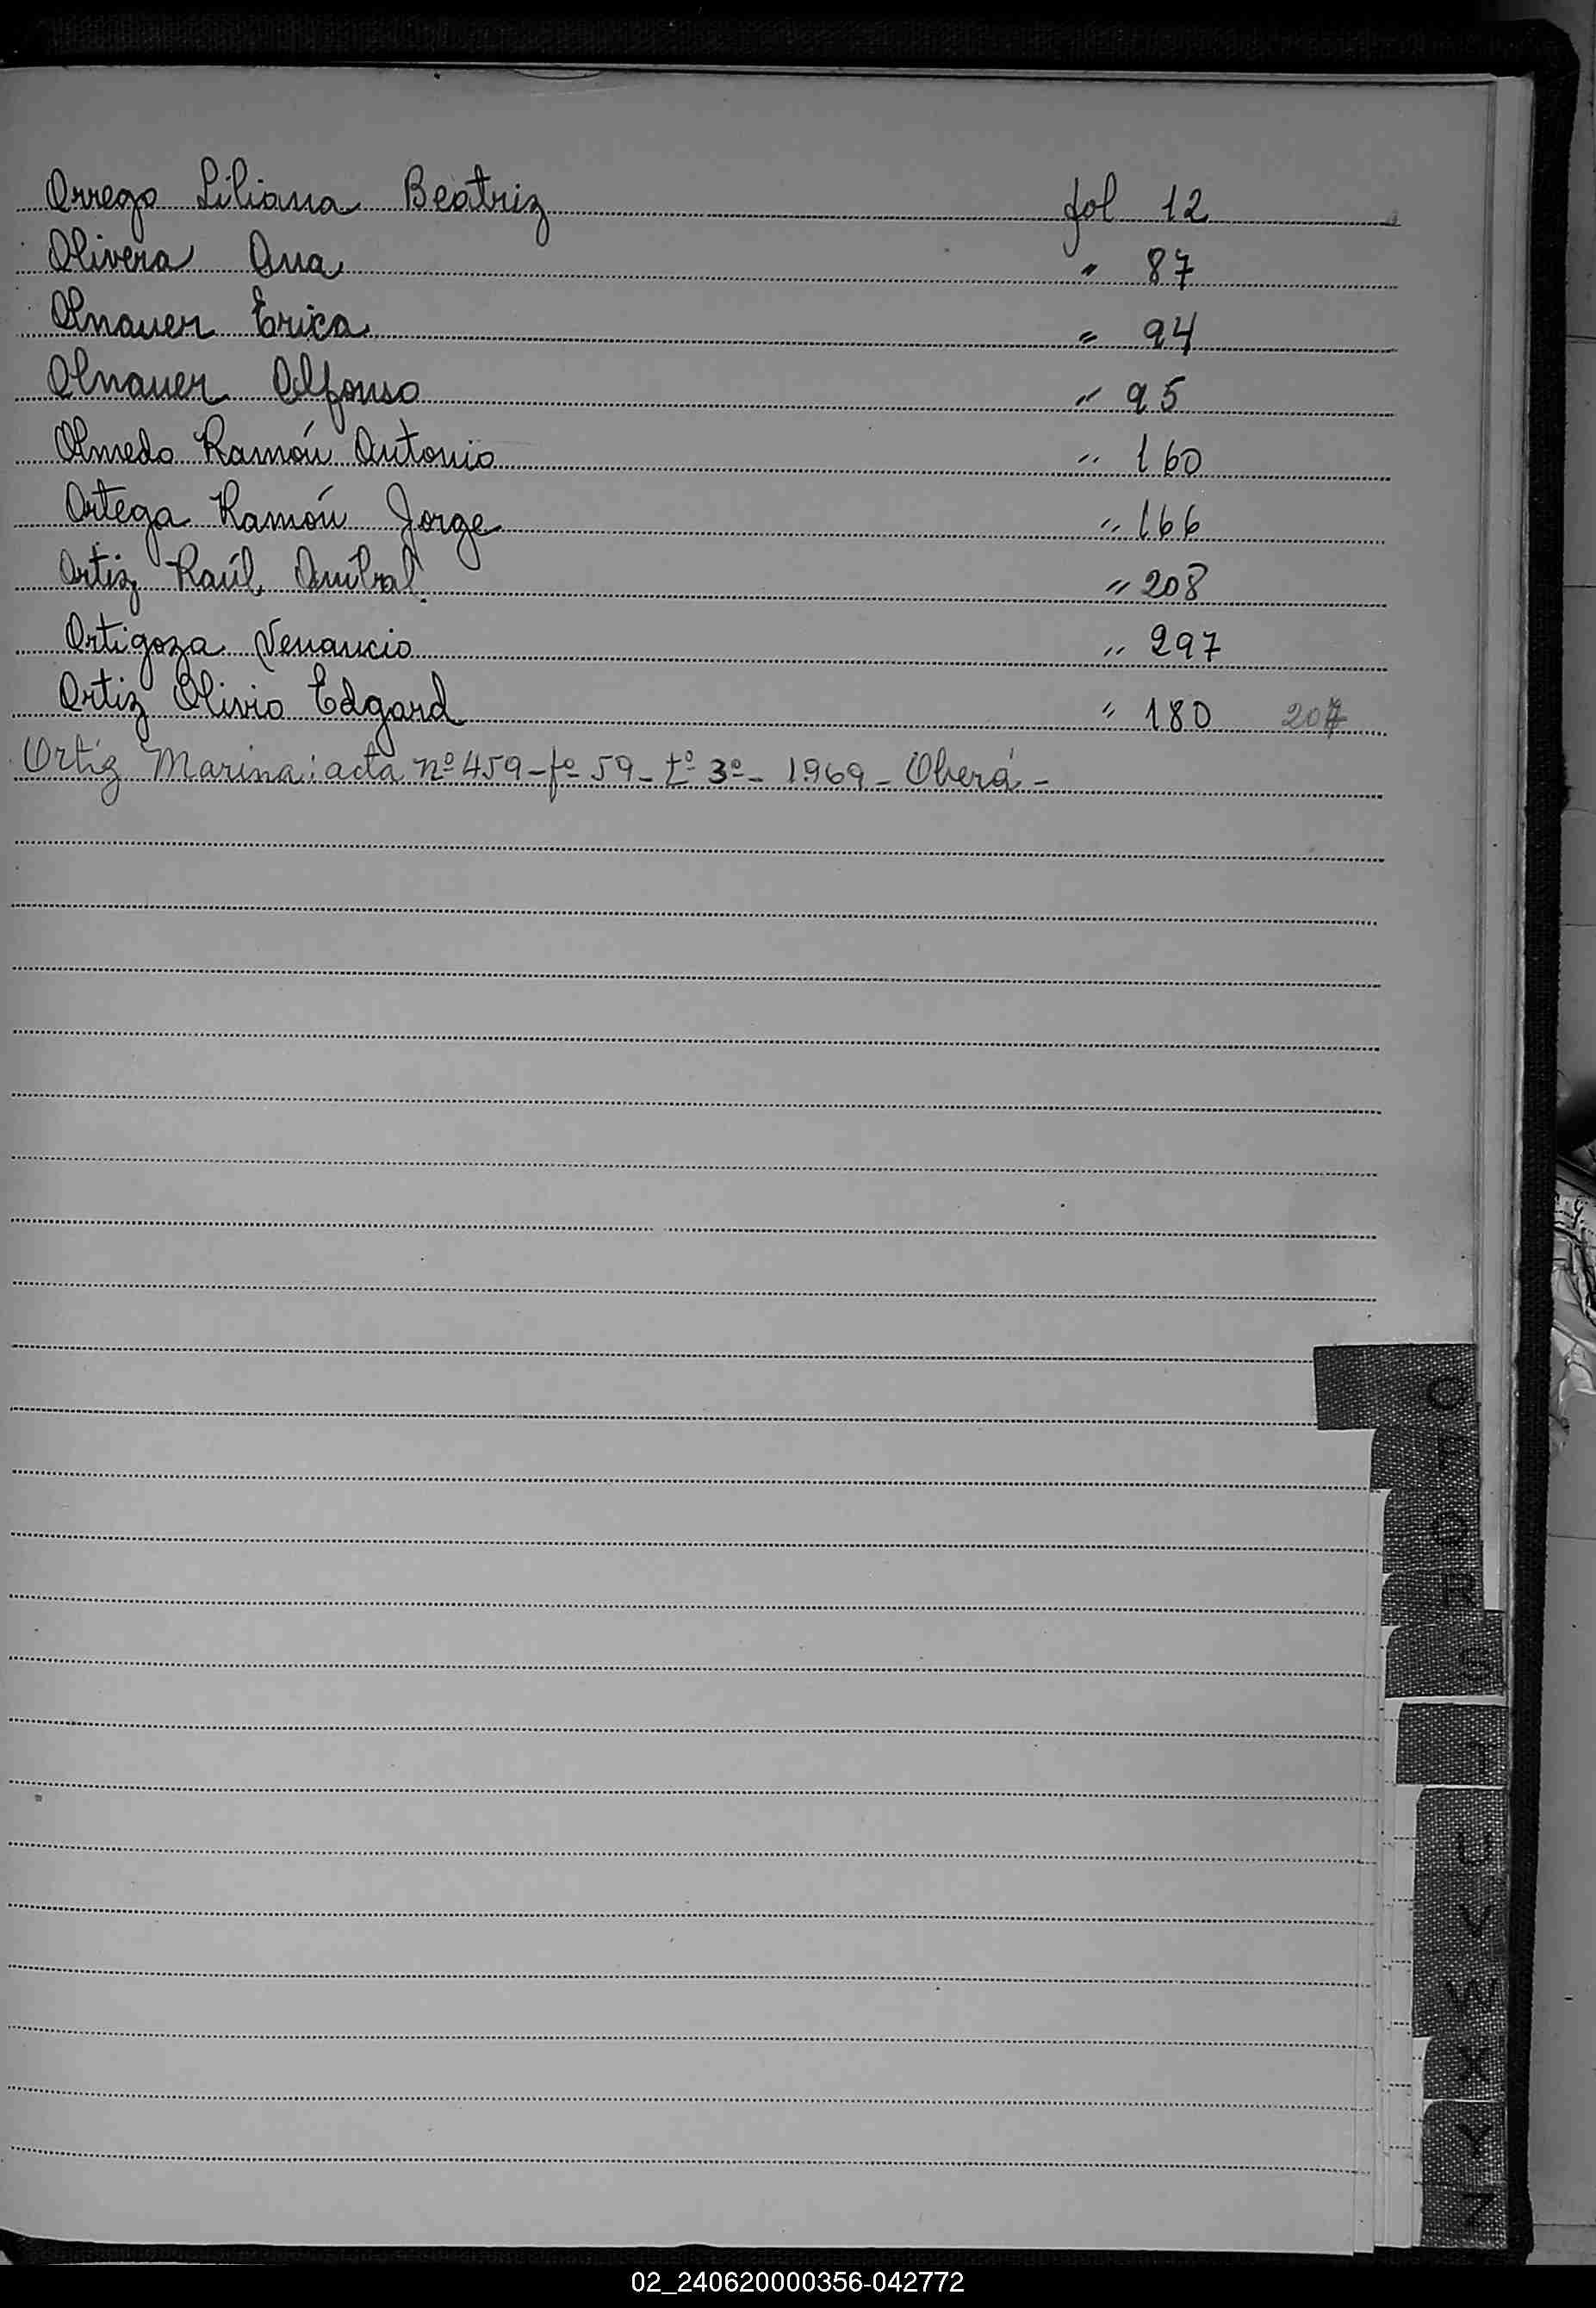 Orrego Liliana Beatriz fol 12
Olivera Ana " 87
Olnauer Erica " 94
Olnauer Alfonso " 95
Olmedo Ramón Antonio " 160
Ortega Ramón Jorge " 166
Ortiz Raúl Anibal. " 208
Ortigoza Venancio " 297
Ortiz Olivio Edgard " 180 207
Ortíz Marina: acta nº 459 - fº 59 - tº 3º - 1969 - Oberá -
O
P
Q
R
S
T
U
V
W
X
Y
Z
02_240620000356-042772